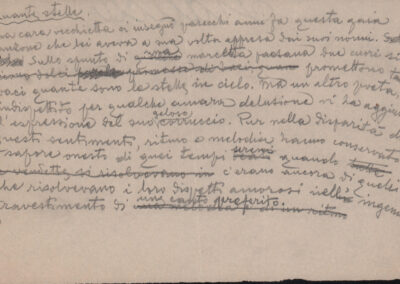 uante stelle.
na cara vecchietta ci insegnò parecchi anni fa questa gaia
anzone che lei aveva a sua volta appresa dai suoi nonni.
Sullo spunto di una mazurca paesana due cuori si
promettono
baci quante sono le stelle in cielo. Ma un altro poeta,
indispettito per qualche amara delusione vi ha aggiu
l'espressione del suo geloso corruccio. Pur nella disparità d
questi sentimenti, ritmo e melodia hanno conservato
sapore onesto di quei tempi sereni quando
vendette si risolvevano in c'erano ancora di quelli
che risolvevano i loro dispetti amorosi nell' ingenuo
travestimento di un canto preferito.